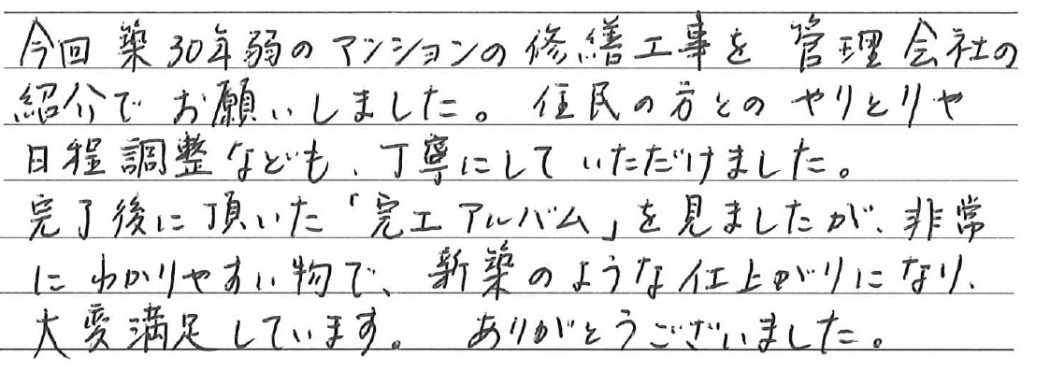 今回 築30年弱のマンションの修繕工事を 管理会社の
紹介で お願いしました。 住民の方との やりとりや
日程調整なども、丁寧にして いただけました。
完了後に頂いた「完工アルバム」を見ましたが、非常
に わかりやすい物で、 新築のような仕上がりになり、
大変満足しています。 ありがとうございました。